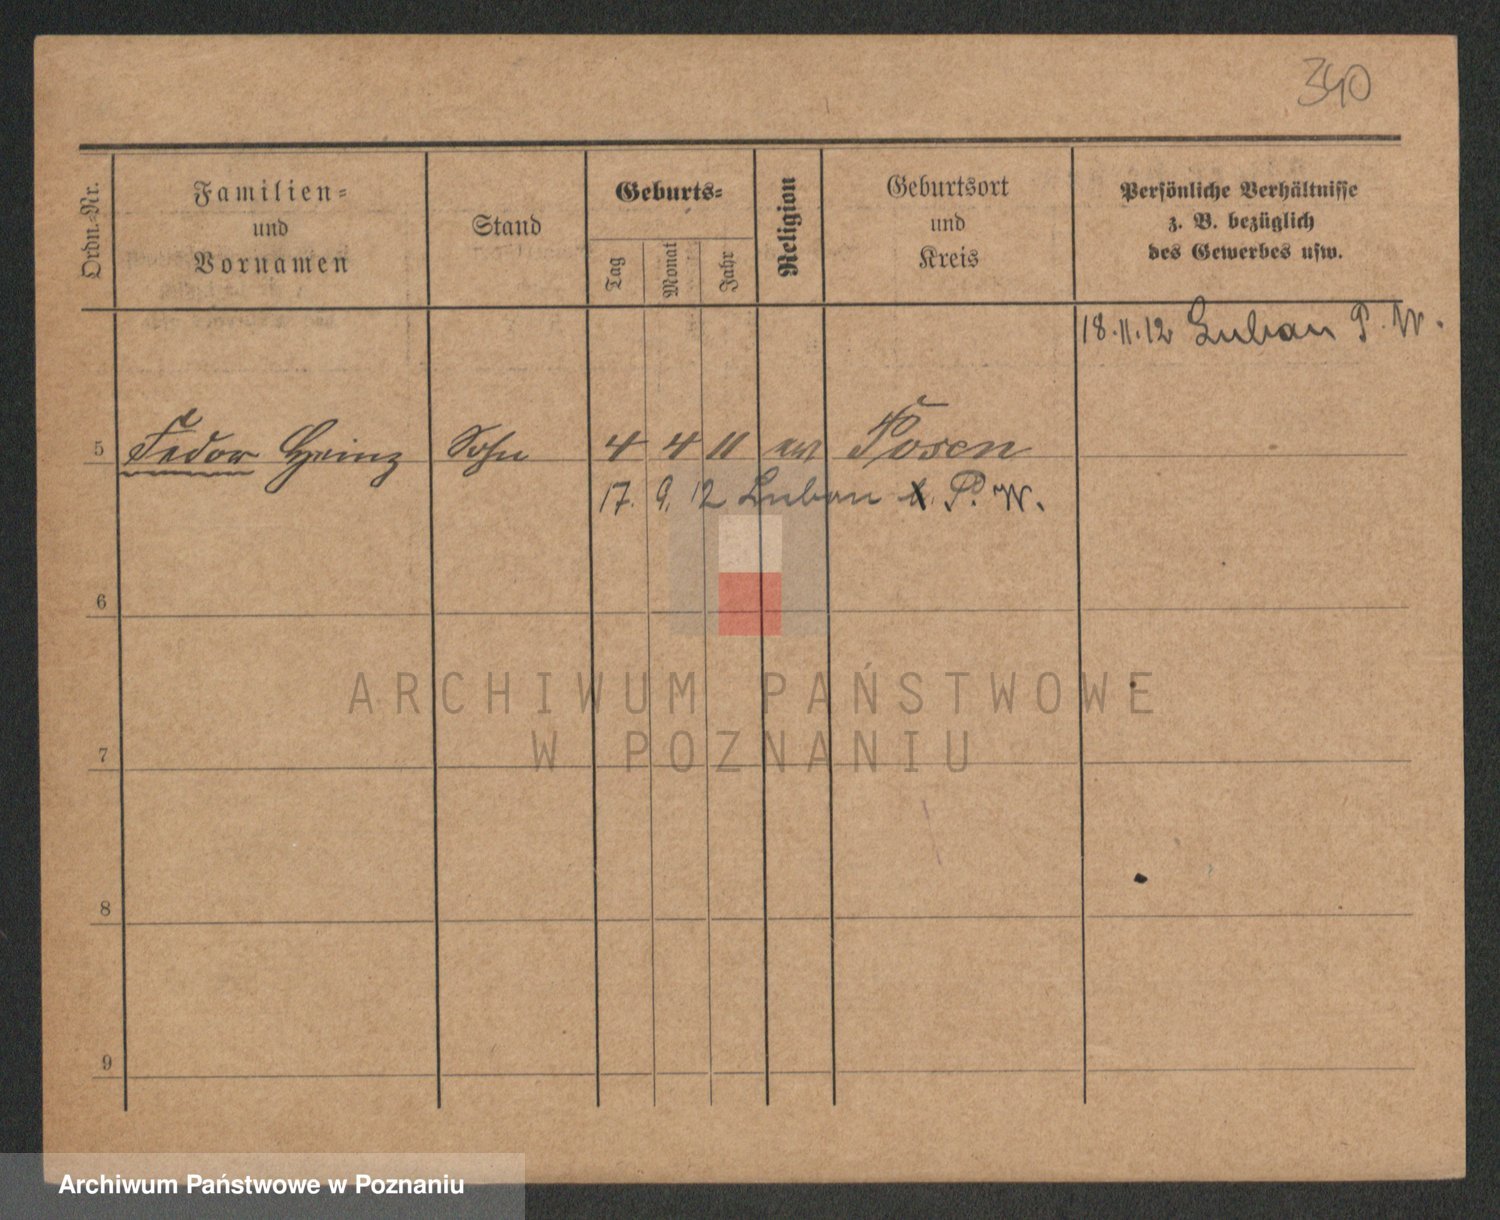 340
Ordn.-Nr.
Familien-
und
Vornamen
Stand
Geburts-
Tag
Monat
Jahr
Religion
Geburtsort
und
Kreis
Persönliche Verhältnisse
z. B. bezüglich
des Gewerbes usw.
18.11.12 Luban P. W.
5 Fedor Heinz Sohn 4 4 11 ev Posen
17. 9. 12 Luban P. W.
6
ARCHIWUM PAŃSTWOWE
W POZNANIU
7
8
9
Archiwum Państwowe w Poznaniu